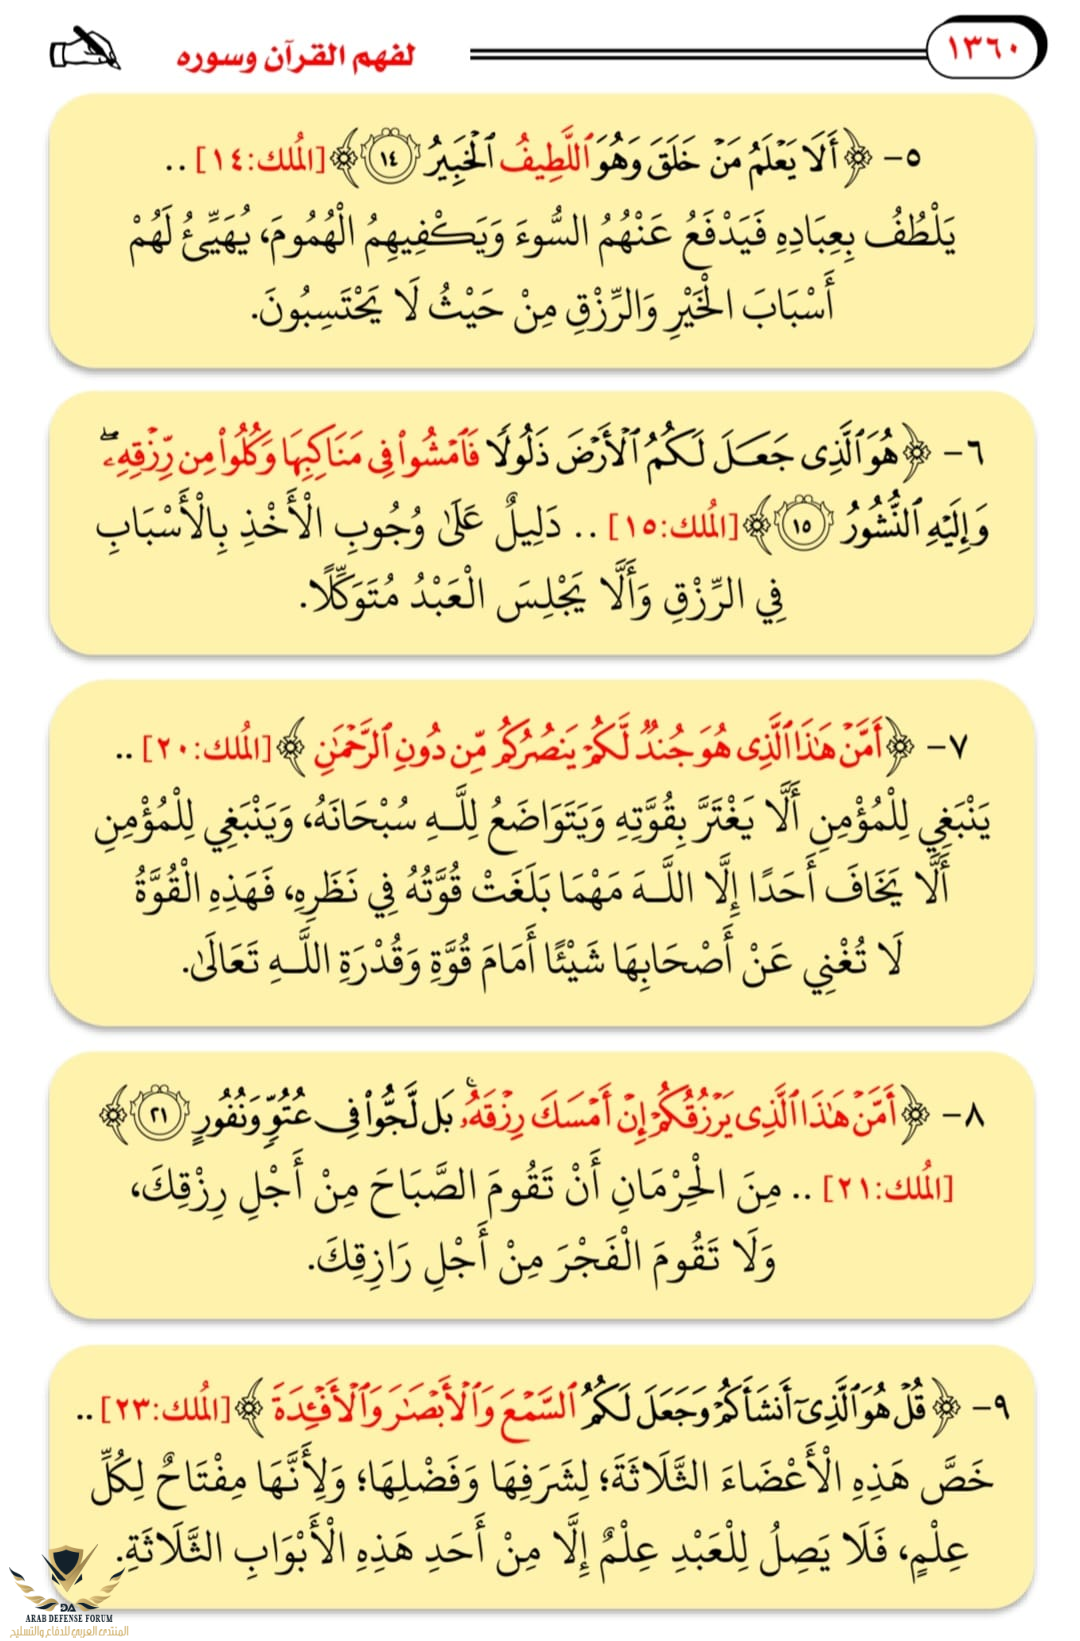 ١٣٦٠
لفهم القرآن وسوره
٥- ﴿أَلَا يَعْلَمُ مَنْ خَلَقَ وَهُوَ ٱللَّطِيفُ ٱلْخَبِيرُ ١٤﴾ [المُلك:١٤] ..
يَلْطُفُ بِعِبَادِهِ فَيَدْفَعُ عَنْهُمُ السُّوءَ وَيَكْفِيهِمُ الْهُمُومَ، يُهَيِّئُ لَهُمْ
أَسْبَابَ الْخَيْرِ وَالرِّزْقِ مِنْ حَيْثُ لَا يَحْتَسِبُونَ.
٦- ﴿هُوَ ٱلَّذِى جَعَلَ لَكُمُ ٱلْأَرْضَ ذَلُولًا فَٱمْشُوا۟ فِى مَنَاكِبِهَا وَكُلُوا۟ مِن رِّزْقِهِۦ ۖ
وَإِلَيْهِ ٱلنُّشُورُ ١٥﴾ [المُلك:١٥] .. دَلِيلٌ عَلَىٰ وُجُوبِ الْأَخْذِ بِالْأَسْبَابِ
فِي الرِّزْقِ وَأَلَّا يَجْلِسَ الْعَبْدُ مُتَوَكِّلًا.
٧- ﴿أَمَّنْ هَٰذَا ٱلَّذِى هُوَ جُندٌ لَّكُمْ يَنصُرُكُم مِّن دُونِ ٱلرَّحْمَٰنِ﴾ [المُلك:٢٠] ..
يَنْبَغِي لِلْمُؤْمِنِ أَلَّا يَغْتَرَّ بِقُوَّتِهِ وَيَتَوَاضَعُ لِلَّـهِ سُبْحَانَهُ، وَيَنْبَغِي لِلْمُؤْمِنِ
أَلَّا يَخَافَ أَحَدًا إِلَّا اللَّـهَ مَهْمَا بَلَغَتْ قُوَّتُهُ فِي نَظَرِهِ، فَهَذِهِ الْقُوَّةُ
لَا تُغْنِي عَنْ أَصْحَابِهَا شَيْئًا أَمَامَ قُوَّةِ وَقُدْرَةِ اللَّـهِ تَعَالَىٰ.
٨- ﴿أَمَّنْ هَٰذَا ٱلَّذِى يَرْزُقُكُمْ إِنْ أَمْسَكَ رِزْقَهُۥ ۚ بَل لَّجُّوا۟ فِى عُتُوٍّ وَنُفُورٍ ٢١﴾
[المُلك:٢١] .. مِنَ الْحِرْمَانِ أَنْ تَقُومَ الصَّبَاحَ مِنْ أَجْلِ رِزْقِكَ،
وَلَا تَقُومَ الْفَجْرَ مِنْ أَجْلِ رَازِقِكَ.
٩- ﴿قُلْ هُوَ ٱلَّذِىٓ أَنشَأَكُمْ وَجَعَلَ لَكُمُ ٱلسَّمْعَ وَٱلْأَبْصَٰرَ وَٱلْأَفْـِٔدَةَ﴾ [المُلك:٢٣] ..
خَصَّ هَذِهِ الْأَعْضَاءَ الثَّلَاثَةَ؛ لِشَرَفِهَا وَفَضْلِهَا؛ وَلِأَنَّهَا مِفْتَاحٌ لِكُلِّ
عِلْمٍ، فَلَا يَصِلُ لِلْعَبْدِ عِلْمٌ إِلَّا مِنْ أَحَدِ هَذِهِ الْأَبْوَابِ الثَّلَاثَةِ.
DA
ARAB DEFENSE FORUM
المنتدى العربي للدفاع والتسليح